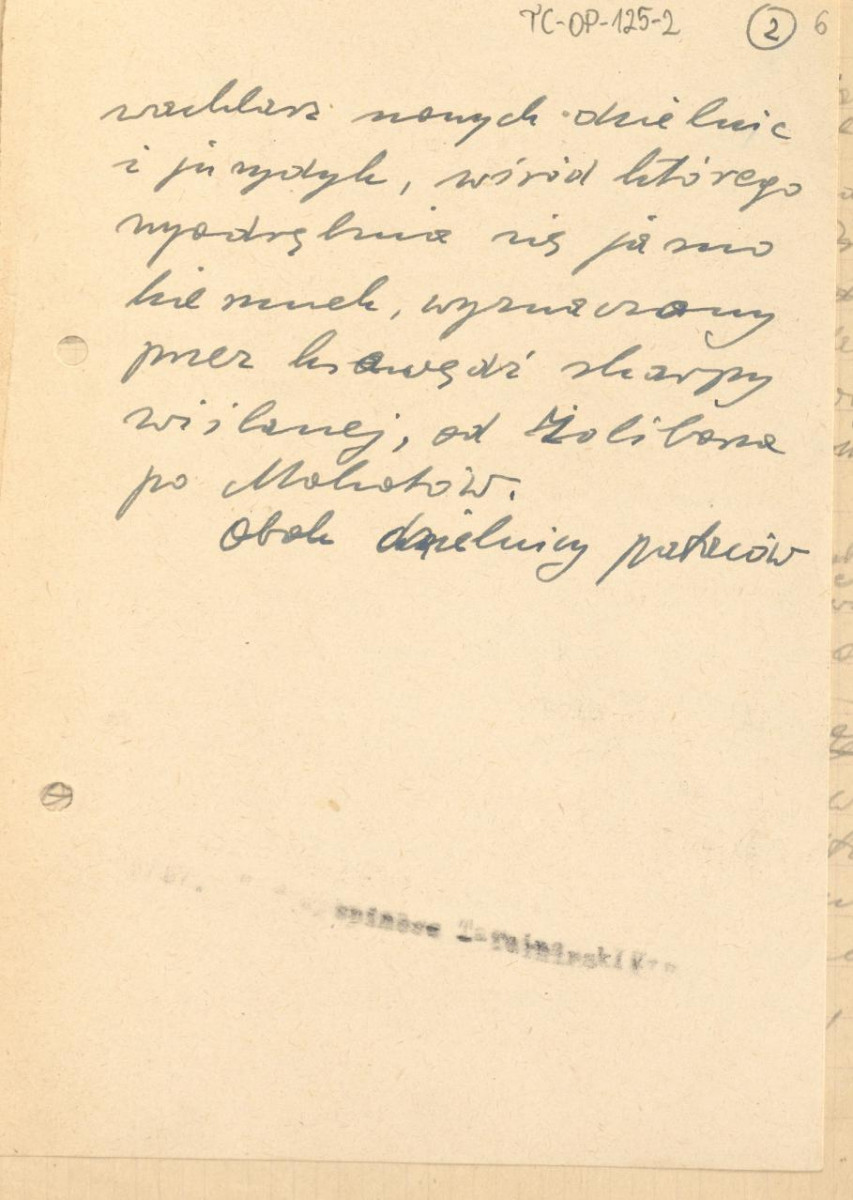 TC-OP-125-2 2 6
wachlarz nowych dzielnic
i jurydyk, wśród którego
wyodrębnia się jasno
kierunek, wyznaczony
przez krawędź skarpy
wiślanej, od Żoliborza
po Mokotów.
Obok dzielnicy pałaców